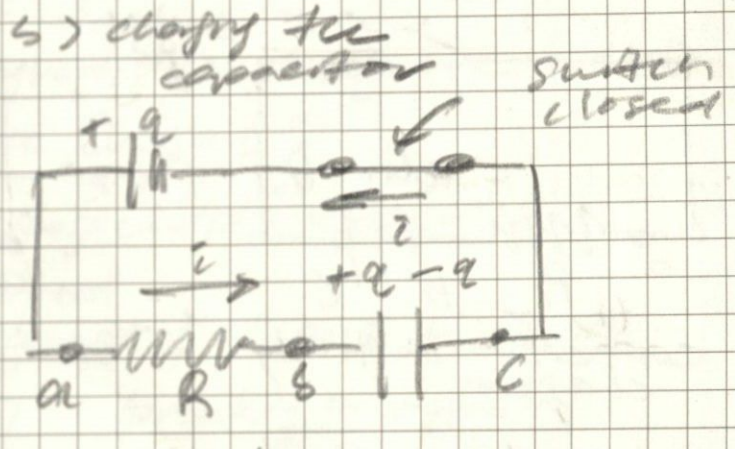 b) charging the
capacitor
switch
closed
+ q
i
i
+q -q
a R b C